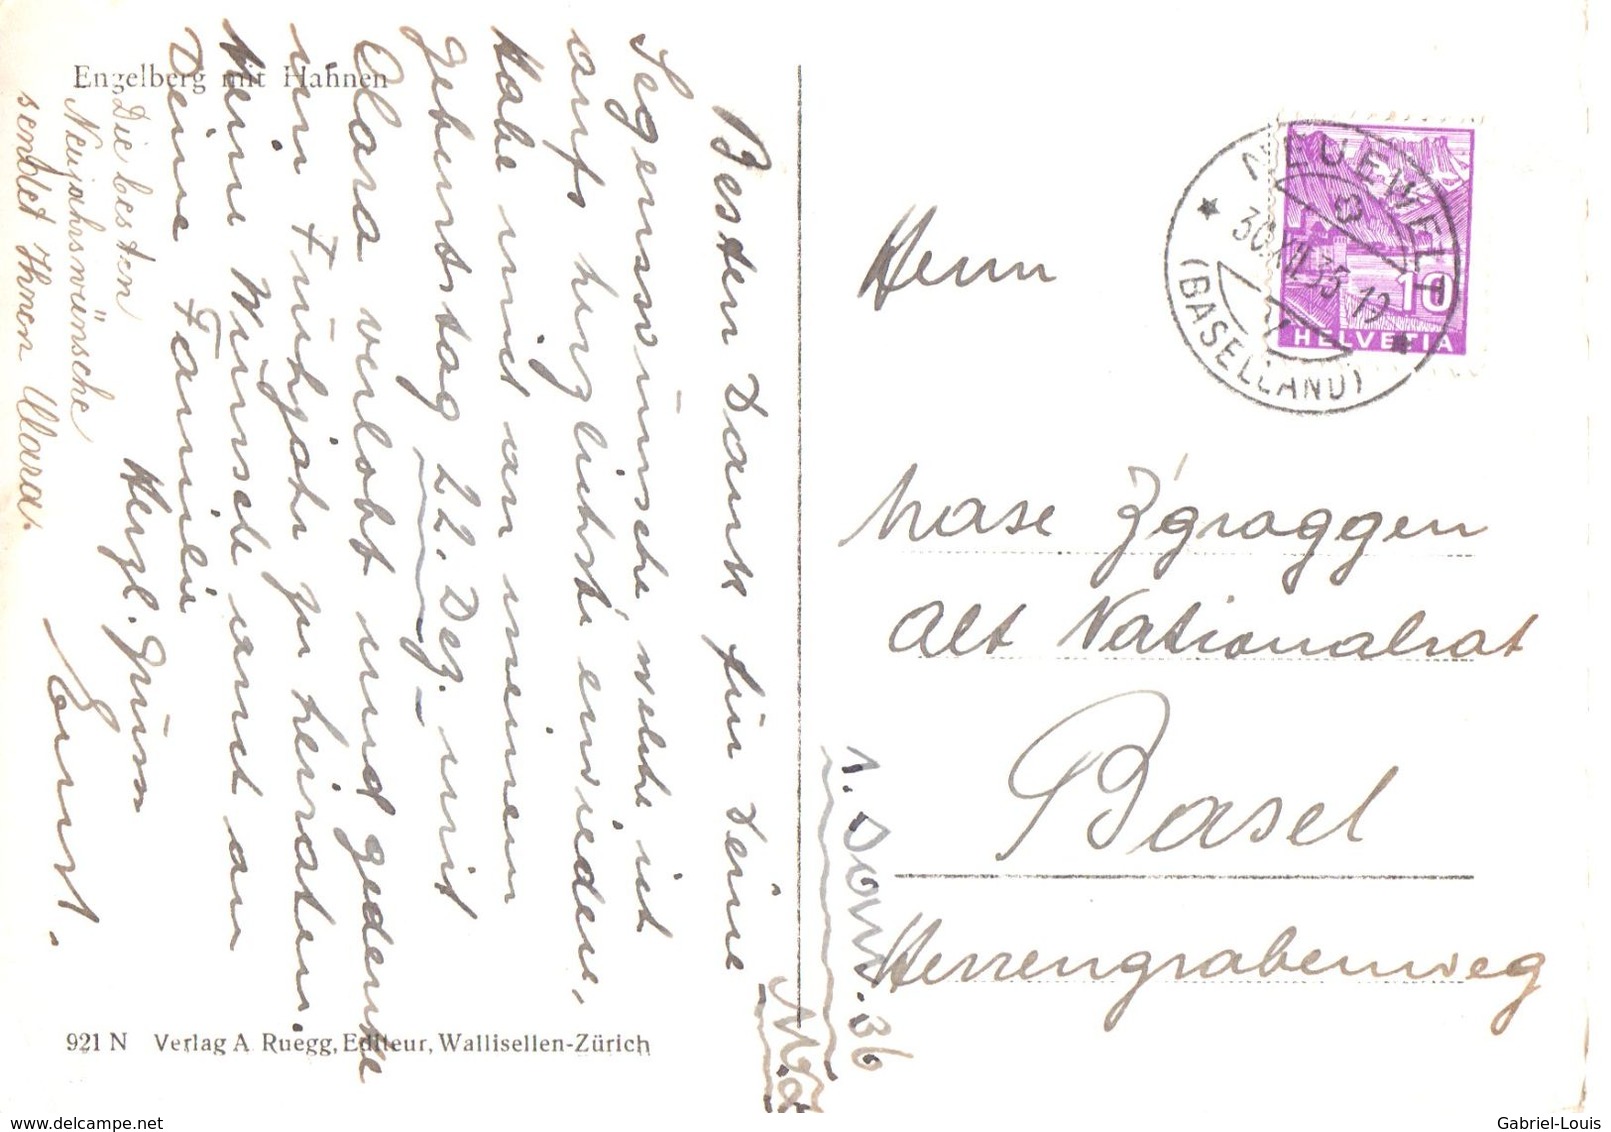 Engelberg mit Hahnen
Besten Dank für Deine
Segenswünsche welche ich
aufs herzlichste erwiedere,
Habe mich an meinem
Geburtstag 22. Dez. mit
Clara verlobt und gedenke
im Frühjahr zu heiraten.
Meine Wünsche auch an
Deine Familie
Herzl. Gruss
Ernst.
Die besten
Neujahrswünsche
sendet Ihnen Clara.
921 N Verlag A. Ruegg, Editeur, Wallisellen-Zürich
NEUEWELT
30.XII.35.19
(BASELLAND)
10
HELVETIA
Herrn
Z'graggen
Alt Nationalrat
Basel
Herrengrabenweg
1. Jan. 36
Gabriel-Louis
www.delcampe.net